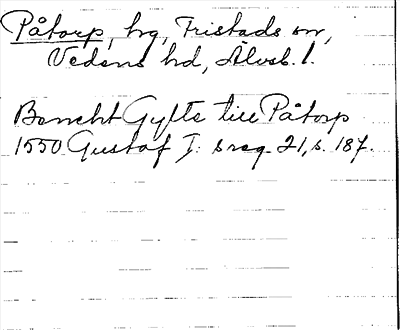 Påtorp, hg, Fristads sn,
Vedens hd, Älvsb. l.
Bencht Gylte till Påtorp
1550 Gustaf I: s reg. 21, s. 187.